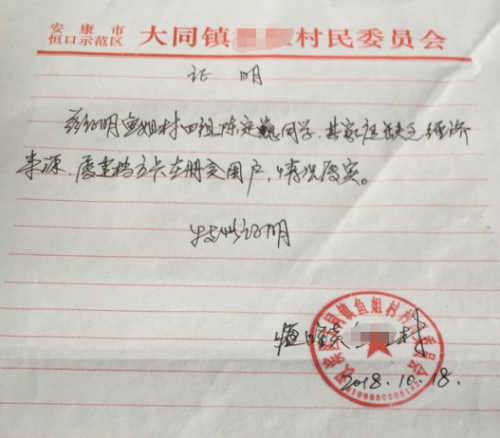 安康市
恒口示范区 大同镇 村民委员会
证 明
兹证明鱼姐村四组陈定 同学,其家庭缺乏经济
来源,属建档立卡在册贫困户,情况属实。
特此证明
大同镇鱼姐村村民委员会
2018.10.18.